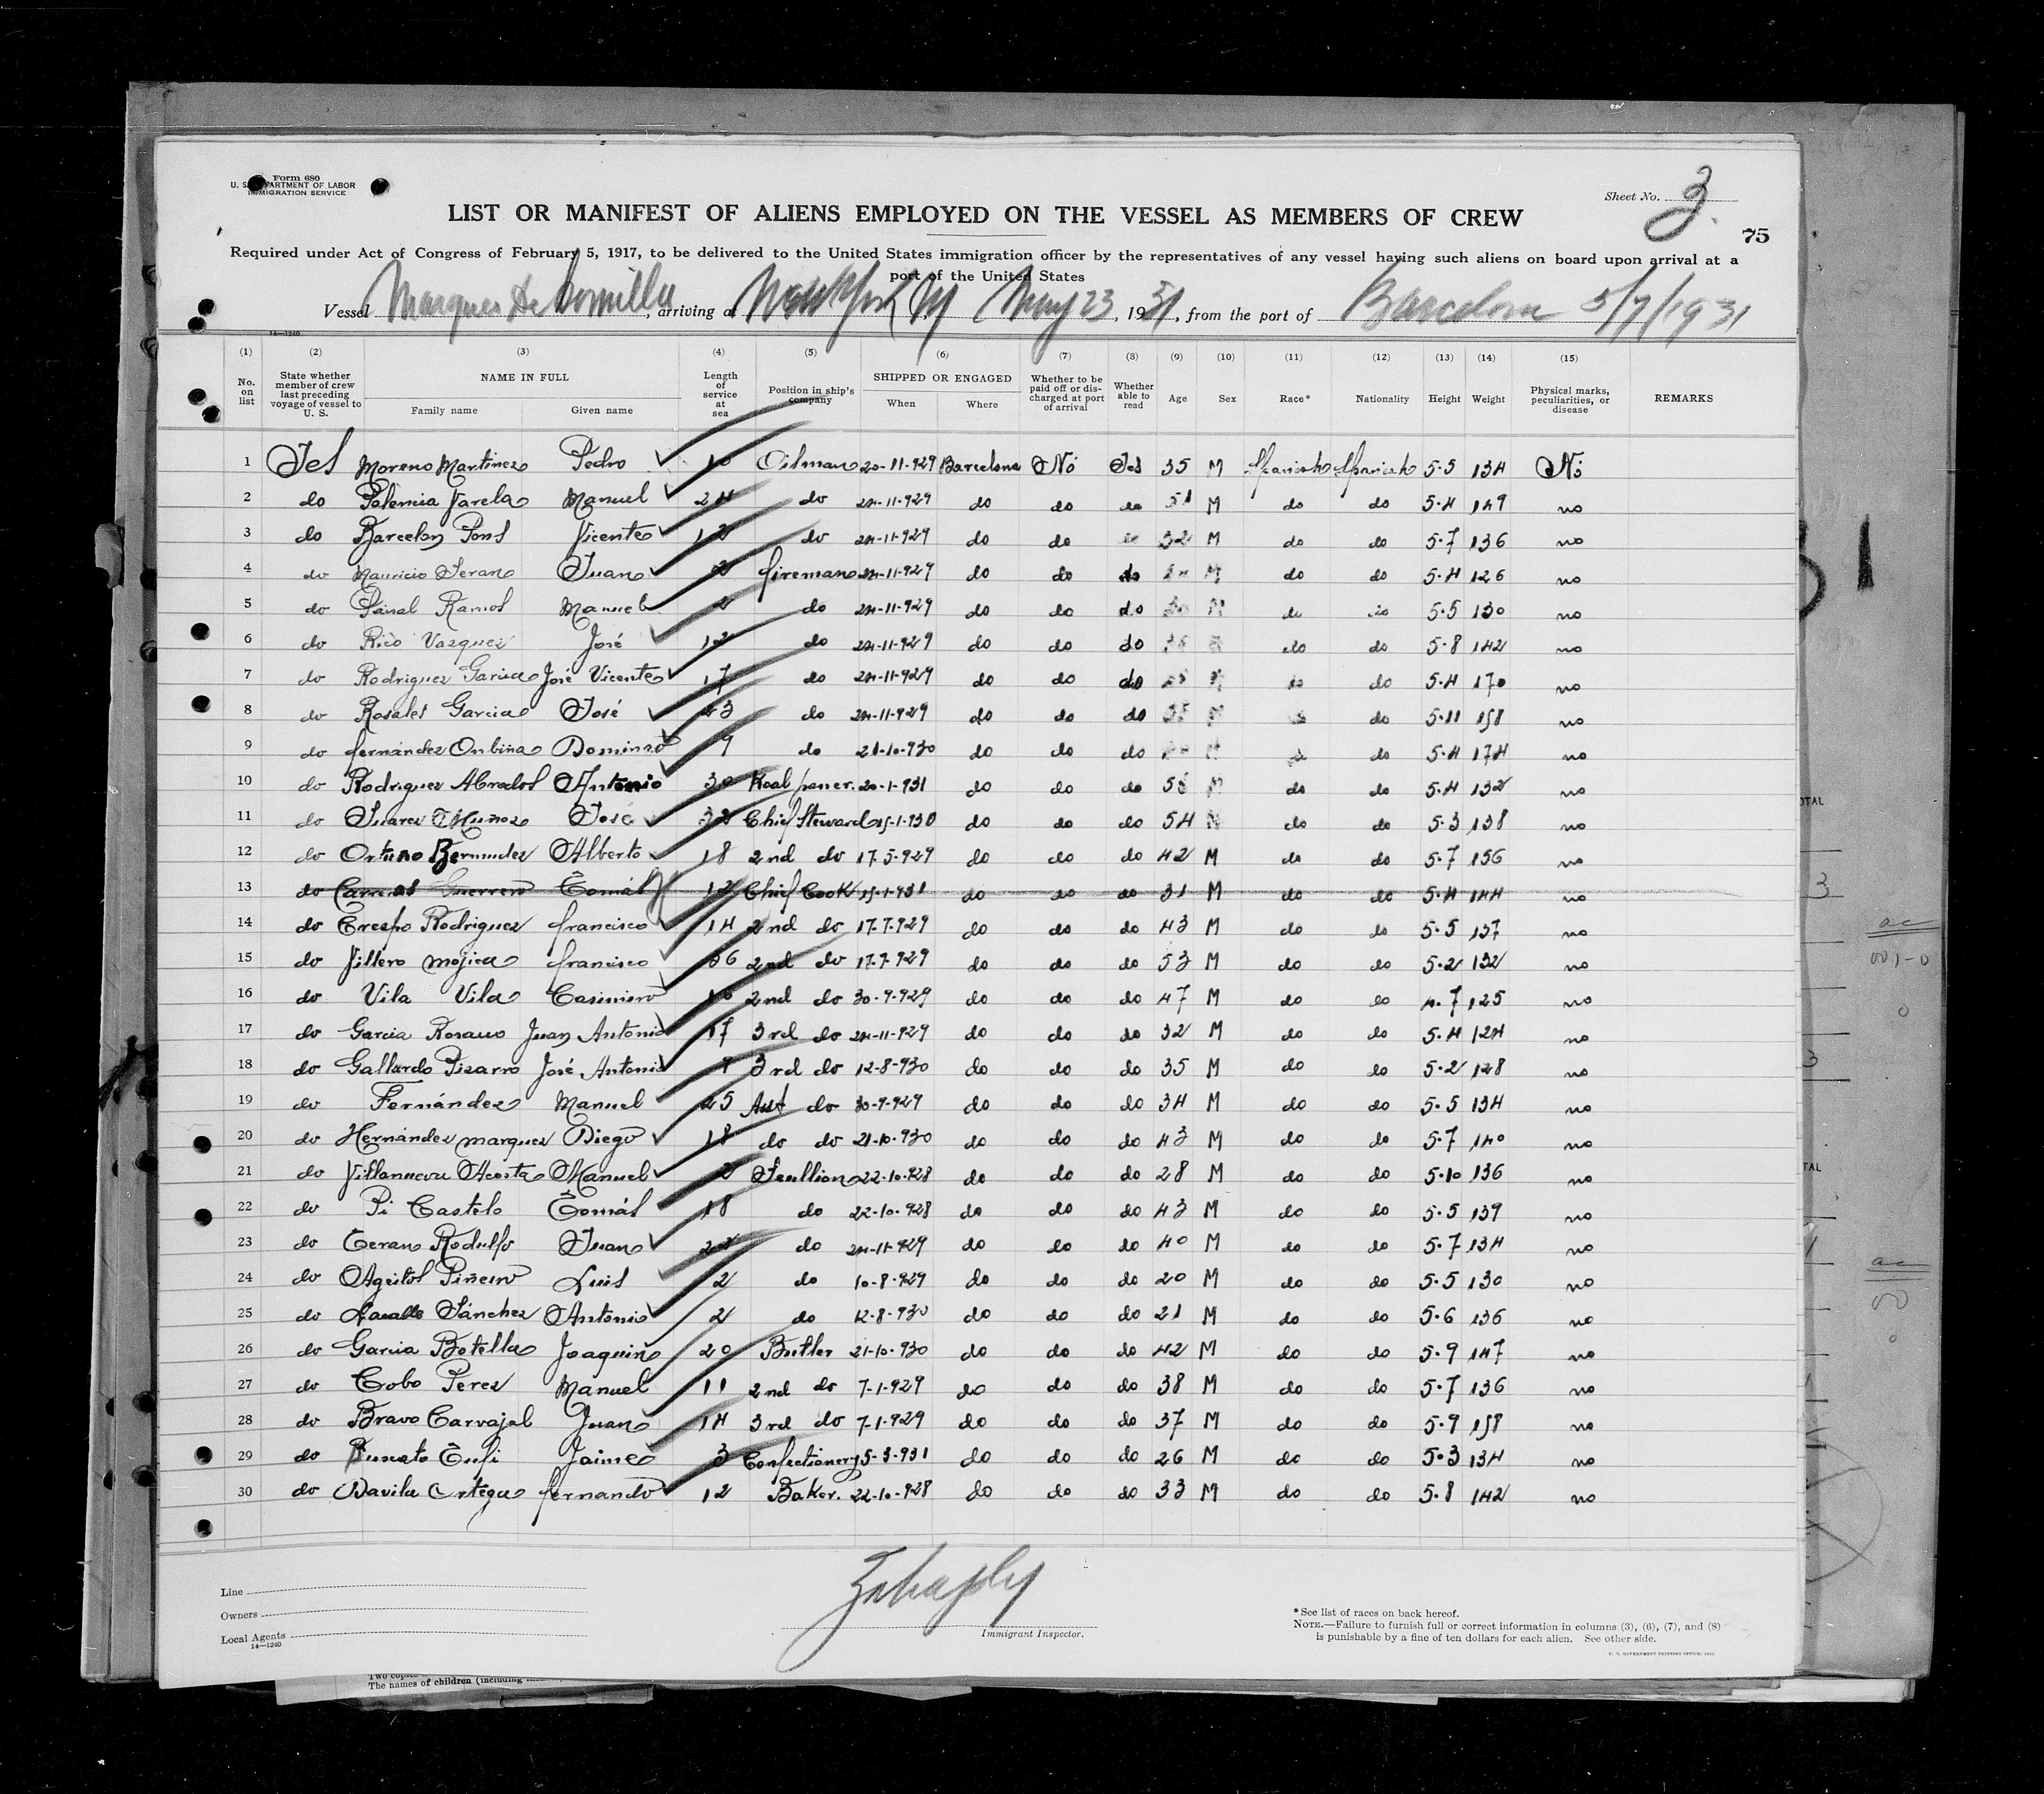 Form 680
U. S. DEPARTMENT OF LABOR
IMMIGRATION SERVICE
Sheet No. 3.
LIST OR MANIFEST OF ALIENS EMPLOYED ON THE VESSEL AS MEMBERS OF CREW
75
Required under Act of Congress of February 5, 1917, to be delivered to the United States immigration officer by the representatives of any vessel having such aliens on board upon arrival at a
port of the United States
Vessel Marques de Comillas, arriving at New York NY May 23, 1931, from the port of Barcelona 5/7/1931
14—1240
(1) (2) (3) (4) (5) (6) (7) (8) (9) (10) (11) (12) (13) (14) (15)
No. on list State whether member of crew last preceding voyage of vessel to U. S. NAME IN FULL Family name Given name Length of service at sea Position in ship's company SHIPPED OR ENGAGED When Where Whether to be paid off or discharged at port of arrival Whether able to read Age Sex Race* Nationality Height Weight Physical marks, peculiarities, or disease REMARKS
1 Yes Moreno Martinez Pedro 10 Oilman 20-11-929 Barcelona No Yes 35 M Spanish Spanish 5-5 134 No
2 do Palencia Varela Manuel 24 do 24-11-929 do do do 51 M do do 5-4 149 no
3 do Barcelon Pons Vicente 12 do 24-11-929 do do do 32 M do do 5-7 136 no
4 do Mauricio Teran Juan 2 fireman 24-11-929 do do do M do do 5-4 126 no
5 do Ramos Manuel 2 do 24-11-929 do do do 30 M do do 5-5 130 no
6 do Rico Vazquez José 12 do 24-11-929 do do do do do 5-8 142 no
7 do Rodriguez Garcia José Vicente 17 do 24-11-929 do do do do do 5-4 170 no
8 do Rosales Garcia José 23 do 24-11-929 do do do M do 5-11 158 no
9 do fernández Domingo 9 do 21-10-930 do do do M do do 5-4 174 no
10 do Rodriguez Antonio 30 20-1-931 do do do M do do 5-4 132 no
11 do Suarez Muñoz José 32 Chief Steward 15-1-930 do do do 54 M do do 5-3 138 no
12 do Ortuno Bermudez Alberto 18 2nd do 17-5-929 do do do 42 M do do 5-7 156 no
13 do Guerrero Tomás 12 Chief Cook 15-1-931 do do do 31 M do do 5-4 144 no
14 do Crespo Rodriguez francisco 14 2nd do 17-7-929 do do do 43 M do do 5-5 137 no
15 do Villero Mojica francisco 36 2nd do 17-7-929 do do do 53 M do do 5-2 132 no
16 do Vila Vila Casimiro 16 2nd do 30-9-929 do do do 47 M do do 4-7 125 no
17 do Garcia Juan Antonio 17 3rd do 24-11-929 do do do 32 M do do 5-4 124 no
18 do Gallardo Pizarro José Antonio 9 3rd do 12-8-930 do do do 35 M do do 5-2 128 no
19 do Fernández Manuel 25 Ast do 30-9-929 do do do 34 M do do 5-5 134 no
20 do Hernández marquez Diego 18 do do 21-10-930 do do do 43 M do do 5-7 140 no
21 do Villanueva Acosta Manuel 2 Scullion 22-10-928 do do do 28 M do do 5-10 136 no
22 do Pi Castelo Tomás 18 do 22-10-928 do do do 43 M do do 5-5 139 no
23 do Teran Rodulfo Juan 22 do 24-11-929 do do do 40 M do do 5-7 134 no
24 do Ageitos Piñeiro Luis 2 do 10-8-929 do do do 20 M do do 5-5 130 no
25 do Sánchez Antonio 2 do 12-8-930 do do do 21 M do do 5-6 136 no
26 do Garcia Botella Joaquin 20 Butler 21-10-930 do do do 42 M do do 5-9 147 no
27 do Cobo Perez Manuel 11 2nd do 7-1-929 do do do 38 M do do 5-7 136 no
28 do Bravo Carvajal Juan 14 3rd do 7-1-929 do do do 37 M do do 5-9 158 no
29 do Jaime 3 Confectionery 5-3-931 do do do 26 M do do 5-3 134 no
30 do Davila Ortega fernando 12 Baker. 22-10-928 do do do 33 M do do 5-8 142 no
Line
Owners
Local Agents
14—1240
Immigrant Inspector.
*See list of races on back hereof.
NOTE.—Failure to furnish full or correct information in columns (3), (6), (7), and (8)
is punishable by a fine of ten dollars for each alien. See other side.
The names of children (including